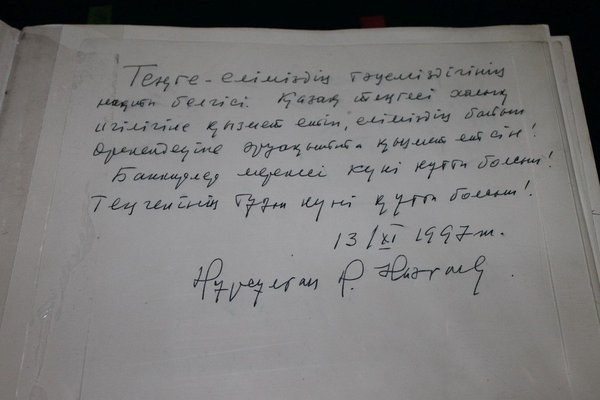 Теңге - еліміздің тәуелсіздігінің
нақты белгісі. Қазақ теңгесі халық
игілігіне қызмет етіп, еліміздің байып
өркендеуіне әрқашанда қызмет етсін!
Банкирлер мерекесі күні құтты болсын!
Теңгенің туған күні құтты болсын!
13/XI 1997ж.